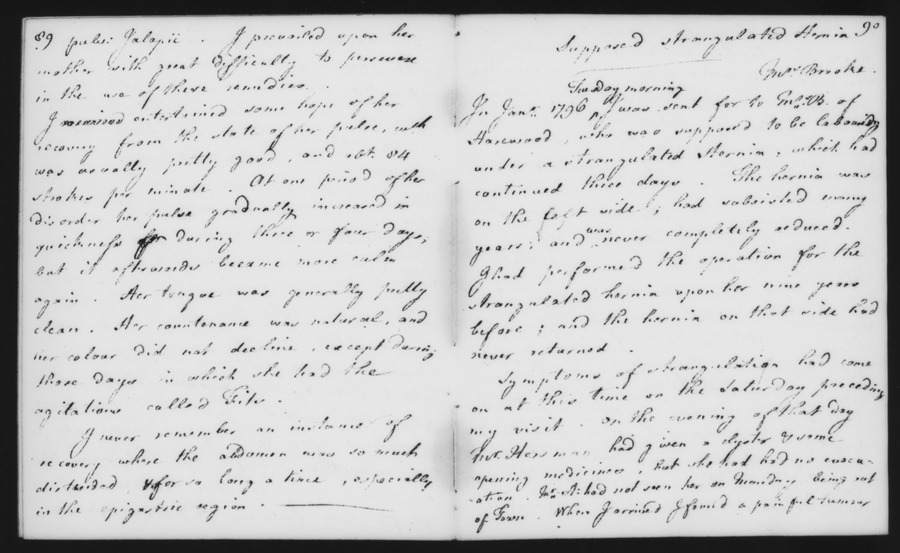 89 pulv: Jalapii. I prevailed upon her
mother with great difficulty to persevere
in the use of these remedies.
I entertained some hope of her
recovery from the state of her pulse, wch
was usually pretty good, and abt. 84
strokes per minute. At one period of her
disorder her pulse gradually increased in
quickness during three or four days;
but it afterwards became more calm
again. Her tongue was generally pretty
clean. Her countenance was natural, and
her colour did not decline, except during
those days in which she had the
agitations called Fits.
I never remember an instance of
recovery where the abdomen was so much
distended, & for so long a time, especially
in the epigastric region.
Supposed strangulated Hernia 90
Mrs. Brooke.
Tuesday morning
In Jany. 1796 I was sent for to Mrs. B. of
Harewood, who was supposed to be labouring
under a strangulated Hernia; which had
continued three days. The hernia was
on the left side; had subsisted many
years; and was never completely reduced.
I had performed the operation for the
strangulated hernia upon her nine years
before; and the hernia on that side had
never returned.
Symptoms of strangulation had come
on at this time on the Saturday preceding
my visit. On the evening of that day
had given a clyster & some
opening medicines; but she had had no evacu-
ation. Mr. H. had not seen her on Monday being out
of Town. When I arrived I found a painful tumour